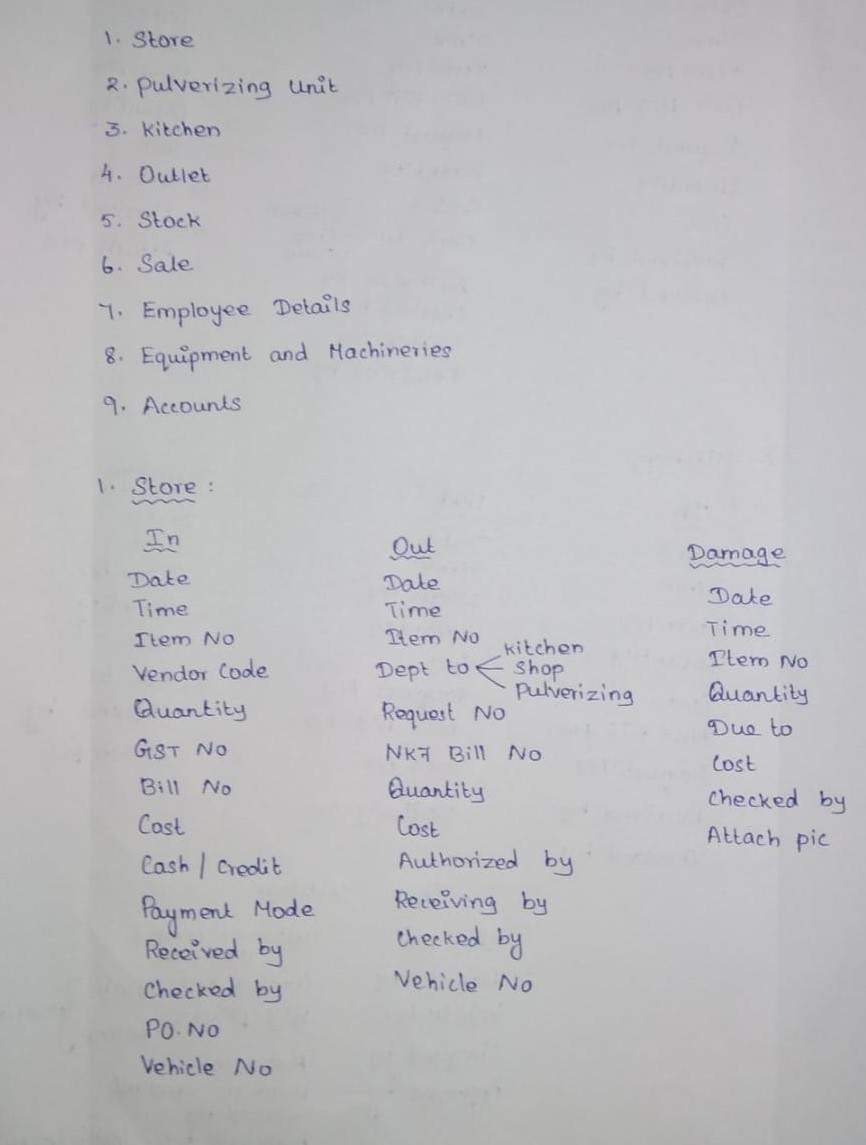 1. Store
2. Pulverizing Unit
3. Kitchen
4. Outlet
5. Stock
6. Sale
7. Employee Details
8. Equipment and Machineries
9. Accounts
1. Store :
In
Date
Time
Item No
Vendor Code
Quantity
GST No
Bill No
Cost
Cash / Credit
Payment Mode
Received by
Checked by
PO. NO
Vehicle No
Out
Date
Time
Item No
Dept to
Kitchen
Shop
Pulverizing
Request No
NK7 Bill No
Quantity
Cost
Authorized by
Receiving by
Checked by
Vehicle No
Damage
Date
Time
Item No
Quantity
Due to
Cost
Checked by
Attach pic